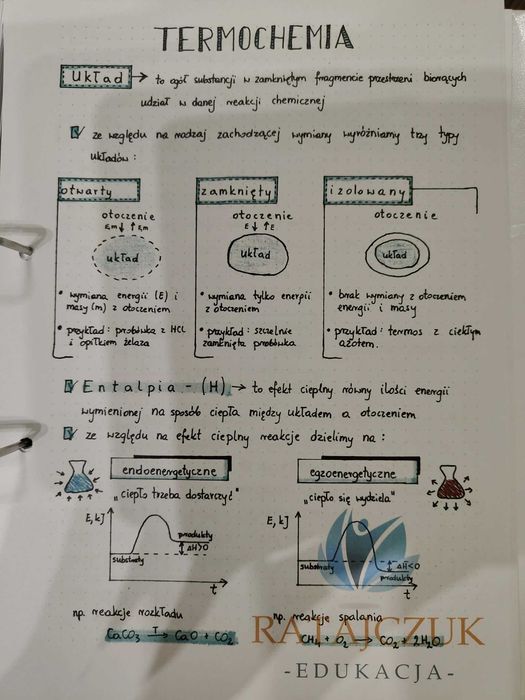 TERMOCHEMIA
Układ → to ogół substancji w zamkniętym fragmencie przestrzeni biorących
udział w danej reakcji chemicznej
ze względu na rodzaj zachodzącej wymiany wyróżniamy trzy typy
układów:
otwarty
otoczenie
E,m ↓ ↑ E,m
układ
• wymiana energii (E) i
masy (m) z otoczeniem
• przykład: probówka z HCl
i opiłkiem żelaza
zamknięty
otoczenie
E ↓ ↑ E
układ
• wymiana tylko energii
z otoczeniem
• przykład: szczelnie
zamknięta probówka
izolowany
otoczenie
układ
• brak wymiany z otoczeniem
energii i masy
• przykład: termos z ciekłym
azotem.
Entalpia - (H) → to efekt cieplny równy ilości energii
wymienionej na sposób ciepła między układem a otoczeniem
ze względu na efekt cieplny reakcje dzielimy na:
endoenergetyczne
„ciepło trzeba dostarczyć"
E, kJ
produkty
ΔH>0
substraty
t
np. reakcje rozkładu
CaCO₃ T→ CaO + CO₂
egzoenergetyczne
„ciepło się wydziela"
E, kJ
substraty
ΔH<0
produkty
t
np. reakcje spalania
CH₄ + O₂ → CO₂ + 2H₂O
RATAJCZUK
-EDUKACJA-